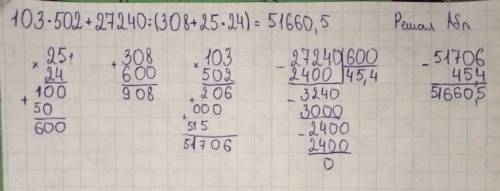 103·502+27240:(308+25·24)=51660,5 Решал Абл
× 25 + 308 × 103 - 27240 | 600 - 51706
24 600 502 2400 | 45,4 45,4
100 908 206 - 3240 51660,5
+ 50 + 000 3000
600 + 515 - 2400
51706 2400
0